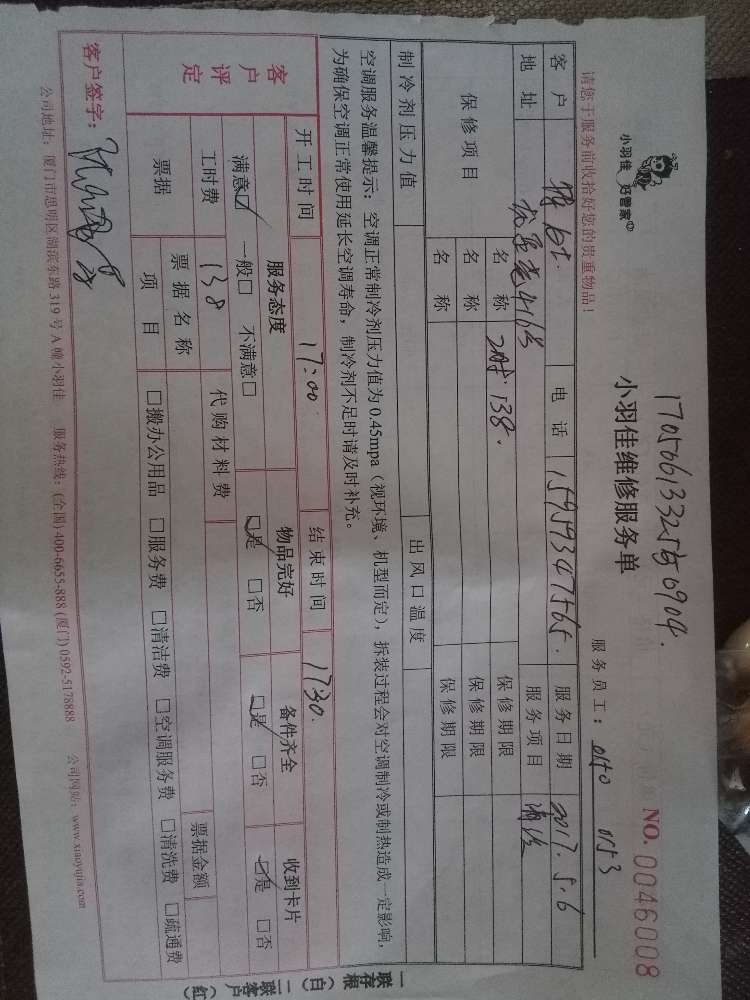 小羽佳 好管家
小羽佳维修服务单
NO.0046008
请您于服务前收拾好您的贵重物品！
服务员工：0140 0153
客户 电话 15959347565. 服务日期 2017.5.6
地址 服务项目
保修项目 名称 138. 保修期限
名称 保修期限
名称 保修期限
制冷剂压力值 出风口温度
空调服务温馨提示：空调正常制冷剂压力值为0.45mpa（视环境、机型而定），拆装过程会对空调制冷或制热造成一定影响，
为确保空调正常使用延长空调寿命，制冷剂不足时请及时补充。
开工时间 17:00 结束时间 1730.
客户评定 服务态度 物品完好 备件齐全 收到卡片
满意☑ 一般□ 不满意□ ☑是 □否 ☑是 □否 ☑是 □否
工时费 138 代购材料费
票据 票据名称 票据金额
项目 □搬办公用品 □服务费 □清洁费 □空调服务费 □清洗费 □疏通费
客户签字：
公司地址：厦门市思明区湖滨东路319号A幢小羽佳 服务热线：(全国)400-6655-888 (厦门)0592-5178888 公司网站：www.xiaoyujia.com
一联存根（白）二联客户（红）